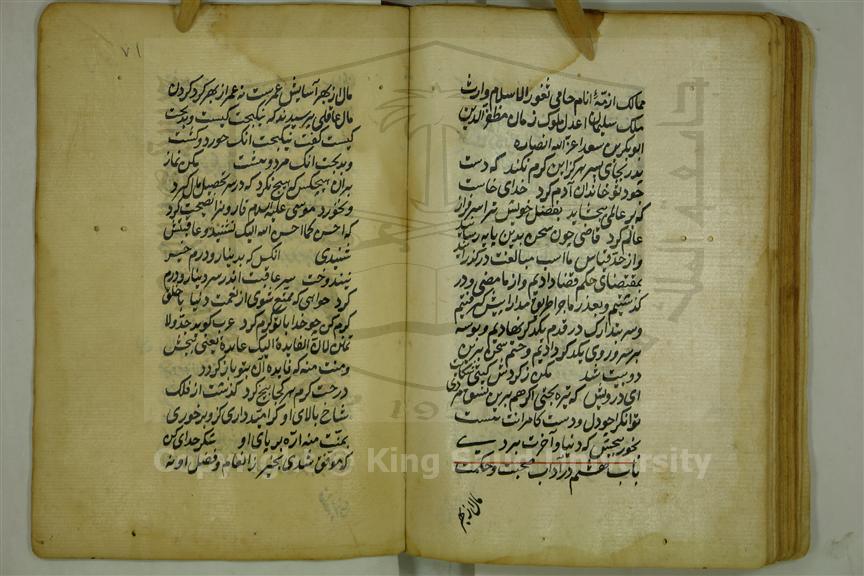 ممالک ازمّهٔ انام حامی ثغور الاسلام وارث
ملک سلیمان اعدل ملوک زمان مظفر الدین
ابوبکر بن سعد اعز الله انصاره
پدر بجای پسر هرگز این کرم نکند که دست
جود تو خاندان آدم کرد خدای خاست
که بر عالمی ببخشاید بفضل خویش ترا سرفراز
عالم کرد قاضی چون سخن بدین پایه رسانید
و از حد قیاس ما اسب مبالغت در گذرانید
بمقتضای حکم قضا دادیم و از ما مضی در
گذشتیم و بعد از ماجرا طریق مدارا پیش گرفتیم
و سر بتدارک در قدم یکدگر نهادیم و بوسه
بر سر و روی یکدگر دادیم و ختم سخن برین
دو بیت شد مکن ز گردش گیتی شکایت
ای درویش که تیره بختی اگر هم برین نسق مردی
توانگرا چو دل و دست کامرانت نیست
بخور ببخش که دنیا و آخرت بردی
باب هشتم در آداب صحبت و حکمت
مال از بهر
۷۱
مال از بهر آسایش عمرست نه عمر از بهر گرد کردن
مال عاقلی پرسیدند که نیکبخت کیست و بدبخت
کیست گفت نیکبخت انک خورد و کشت
و بدبخت انک مرد و هشت مکن نماز
بر ان هیچکس که هیچ نکرد که در سر تحصیل مال کرد
و نخورد موسی علیه السلام قارون را نصیحت کرد
که احسن کما احسن الله الیک نشنید و عاقبتش
شنیدی انکس که بدینار و درم خیر
نیندوخت سر عاقبت اندر سر دینار و درم
کرد خواهی که ممتع شوی از نعمت دنیا با خلق
کرم کن چو خدا با تو کرم کرد عرب گوید جد ولا
تمنن لان الفایده الیک عایده یعنی ببخش
و منت منه که فایده آن بتو باز گردد
درخت کرم هر کجا بیخ کرد گذشت از فلک
شاخ بالای او گر امیدداری کزو برخوری
بمنت منه اره بر پای او شکر خدای کن
که موفق شدی بخیر ز انعام و فضل او نه
Copyright © King Saud University
جامعة الملك